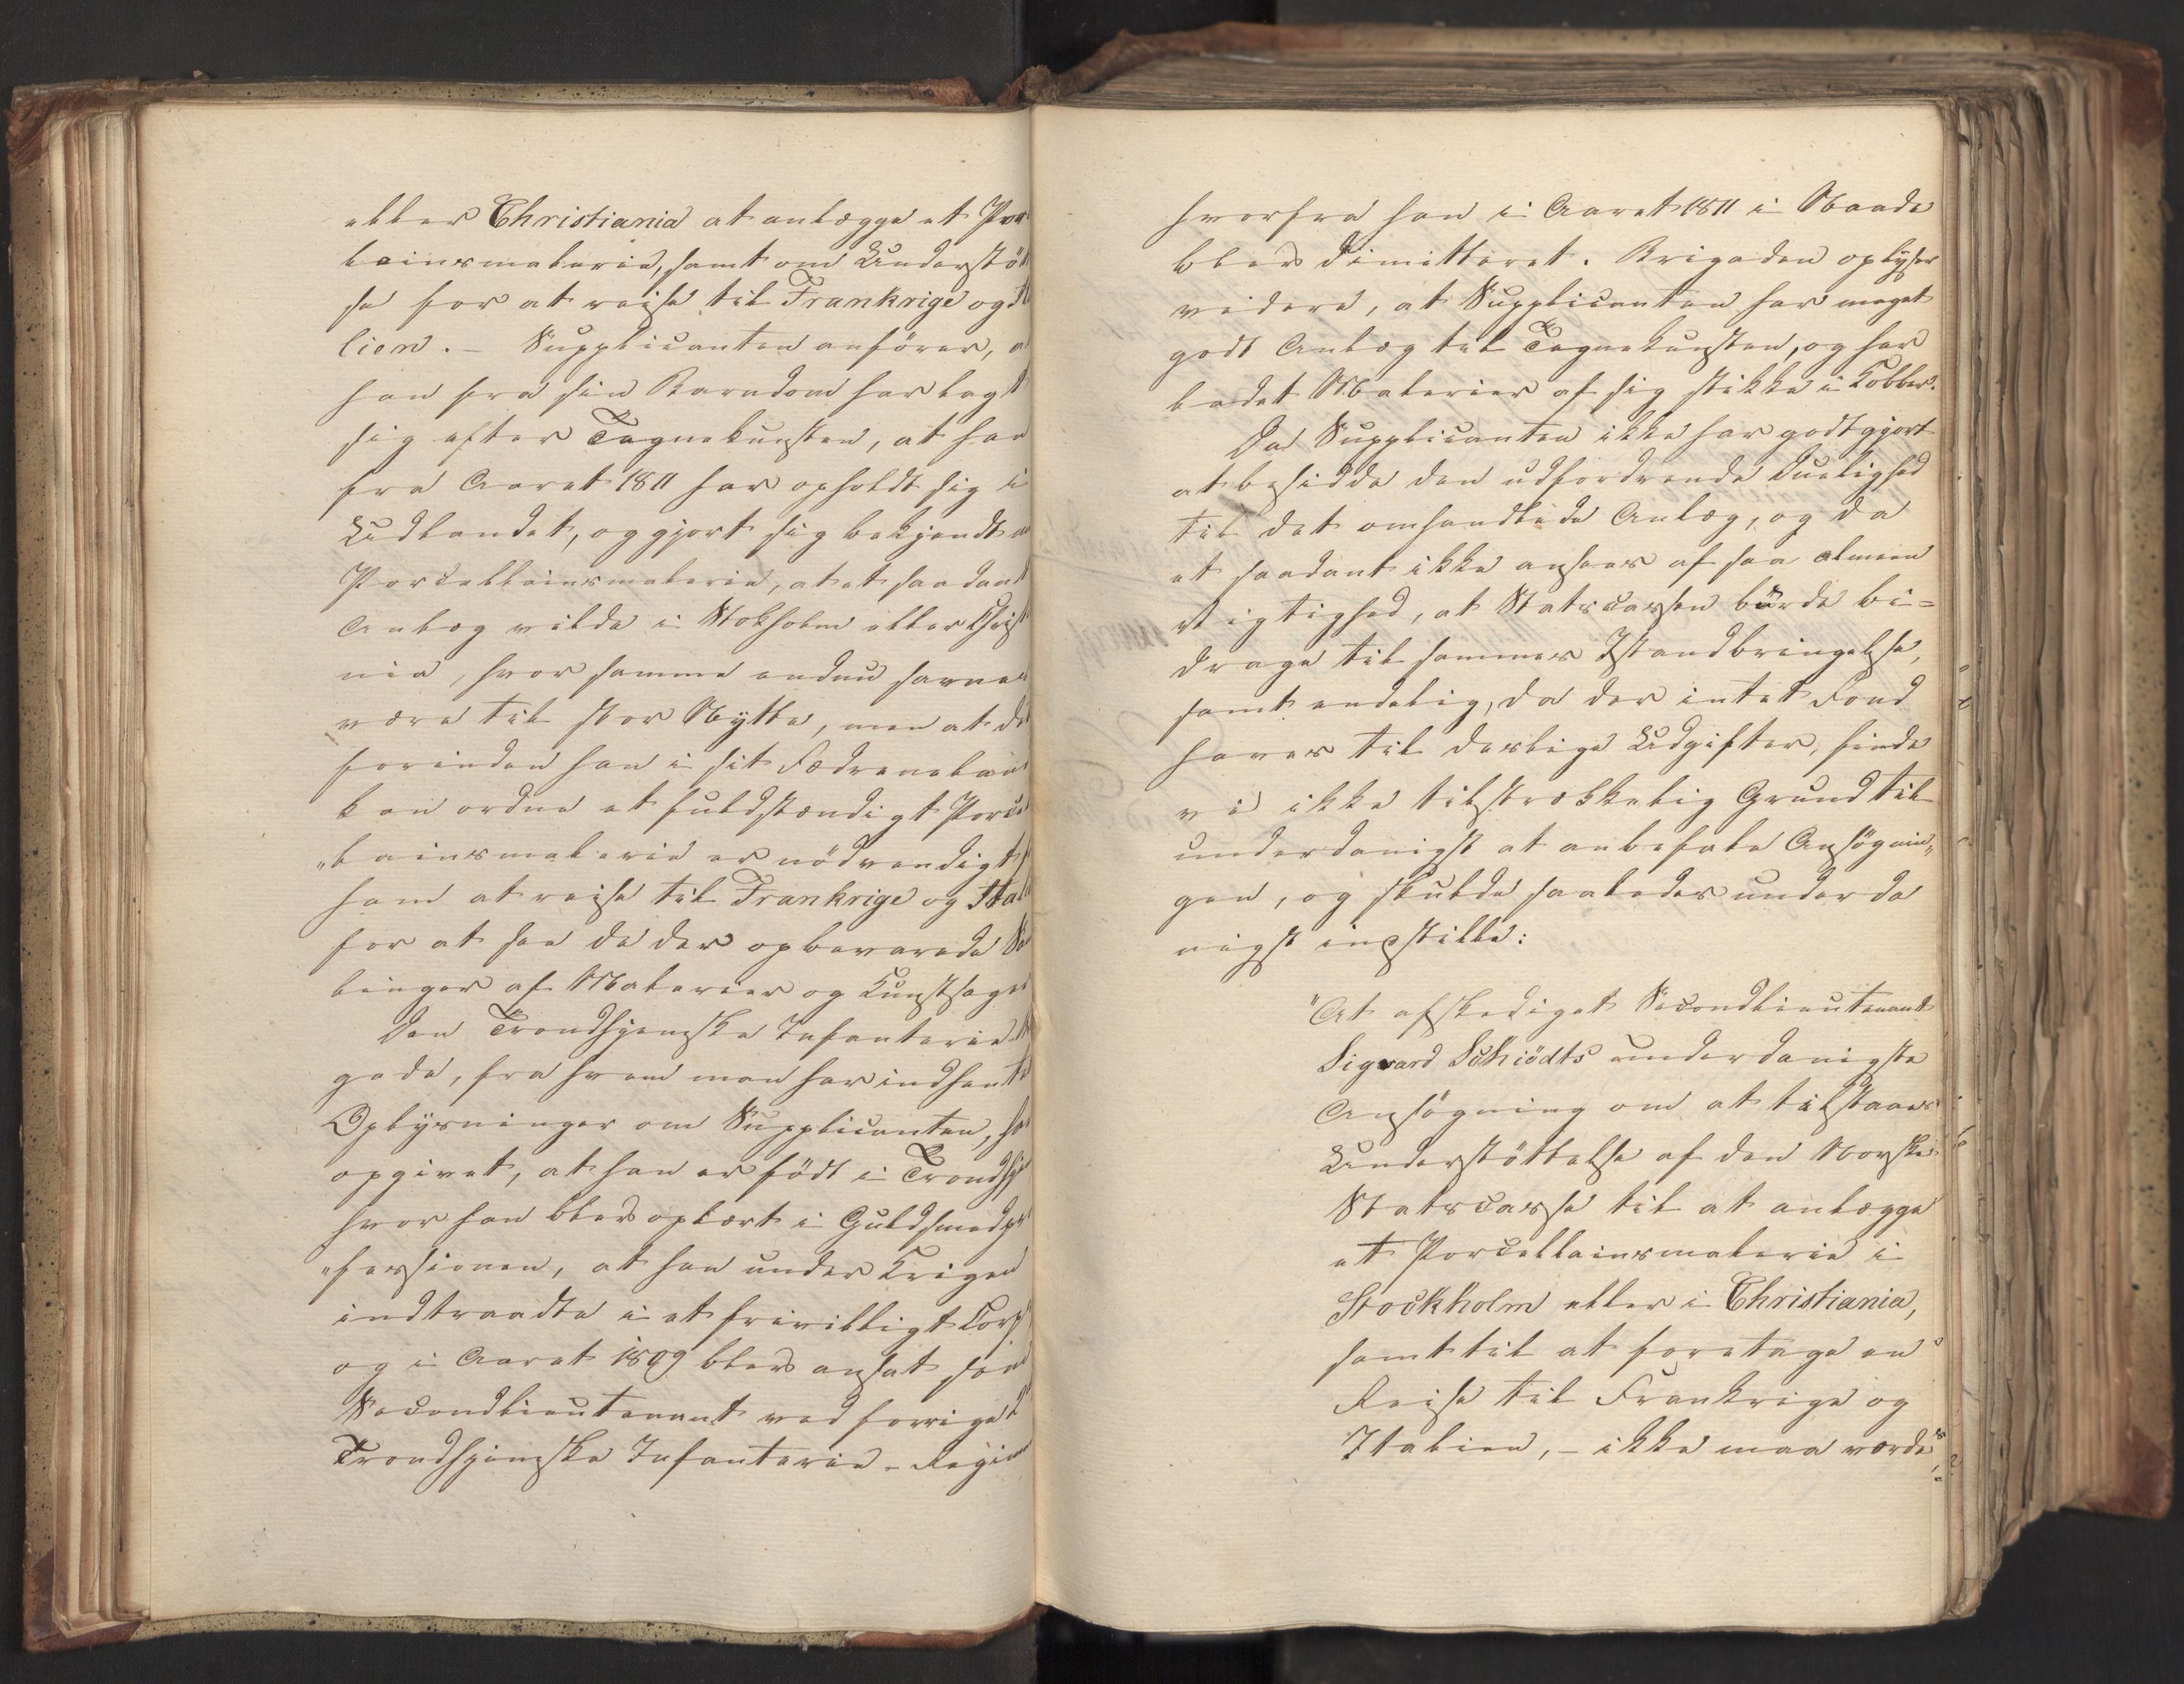 eller Christiania at anlægge et Por
lainsmalerie, samt om Understöt
se for at reise til Frankrige og It
lien. – Supplicanten anförer, at
han fra sin Barndom har lagt
sig efter Tegnekunsten, at han
fra Aaret 1811 har opholdt sig i
Udlandet, og gjort sig bekjendt m
Porcellainsmalerie, at et saadant
Anlæg vilde i Stokholm eller Christ
nia, hvor samme endnu savnes
være til stor Nytte, men at det
forinden han i sit Fædreneland
kan ordne et fuldstændigt Porcel
„lainsmalerie er nödvendigt f
ham at reise til Frankrige og Itali
for at see de der opbevarede Sa
linger af Malerier og Kunstsager
Den Trondhjemske Infanterie B
gade, fra hvem man har indhentet
Oplysninger om Supplicanten, har
opgivet, at han er födt i Trondhj
hvor han blev oplært i Guldsmedpr
„fessionen, at han under Krigen
indtraadte i et frivilligt Corps
og i Aaret 1809 blev ansat som
Secondlieutenant ved forrige 2
Trondhjemske Infanterie-Regim
hvorfra han i Aaret 1811 i Naade
blev dimitteret. Brigaden oplyser
videre, at Supplicanten har meget
godt Anlæg til Tegnekunsten, og har
ladet Malerier af sig stikke i Kobber.
Da Supplicanten ikke har godtgjort
at besidde den udfordrende Duelighed
til det omhandlede Anlæg, og da
et saadant ikke ansees af saa almeen
Vigtighed, at Statscassen burde bi=
drage til sammes Istandbringelse,
samt endelig, da der intet Fond
haves til deslige Udgifter, finde
vi ikke tilstrækkelig Grund til
underdanigst at anbefale Ansögnin„
gen, og skulde saaledes underda
nigst indstille:
"At afskediget Secondlieutenant
Sigvard Schiödts underdanigste
Ansögning om at tilstaaes
Understöttelse af den Norske
Statscasse til at anlægge
et Porcellainsmalerie i
Stockholm eller i Christiania,
samt til at foretage en
Reise til Frankrige og
Italien, – ikke maa vorde